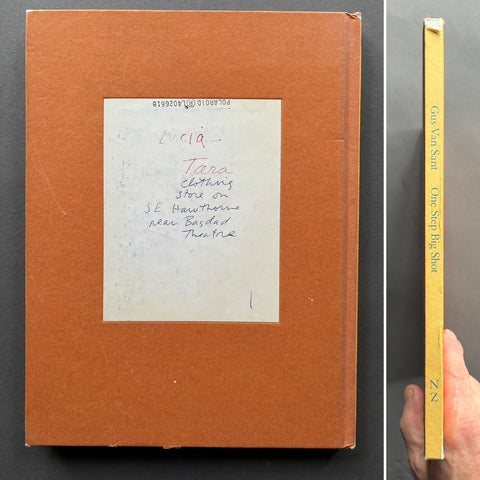 POLAROID ® L4026618
Lucia —
Tara
Clothing
Store on
SE Hawthorne
near Bagdad
Theatre
Gus Van Sant One Step Big Shot
NZ